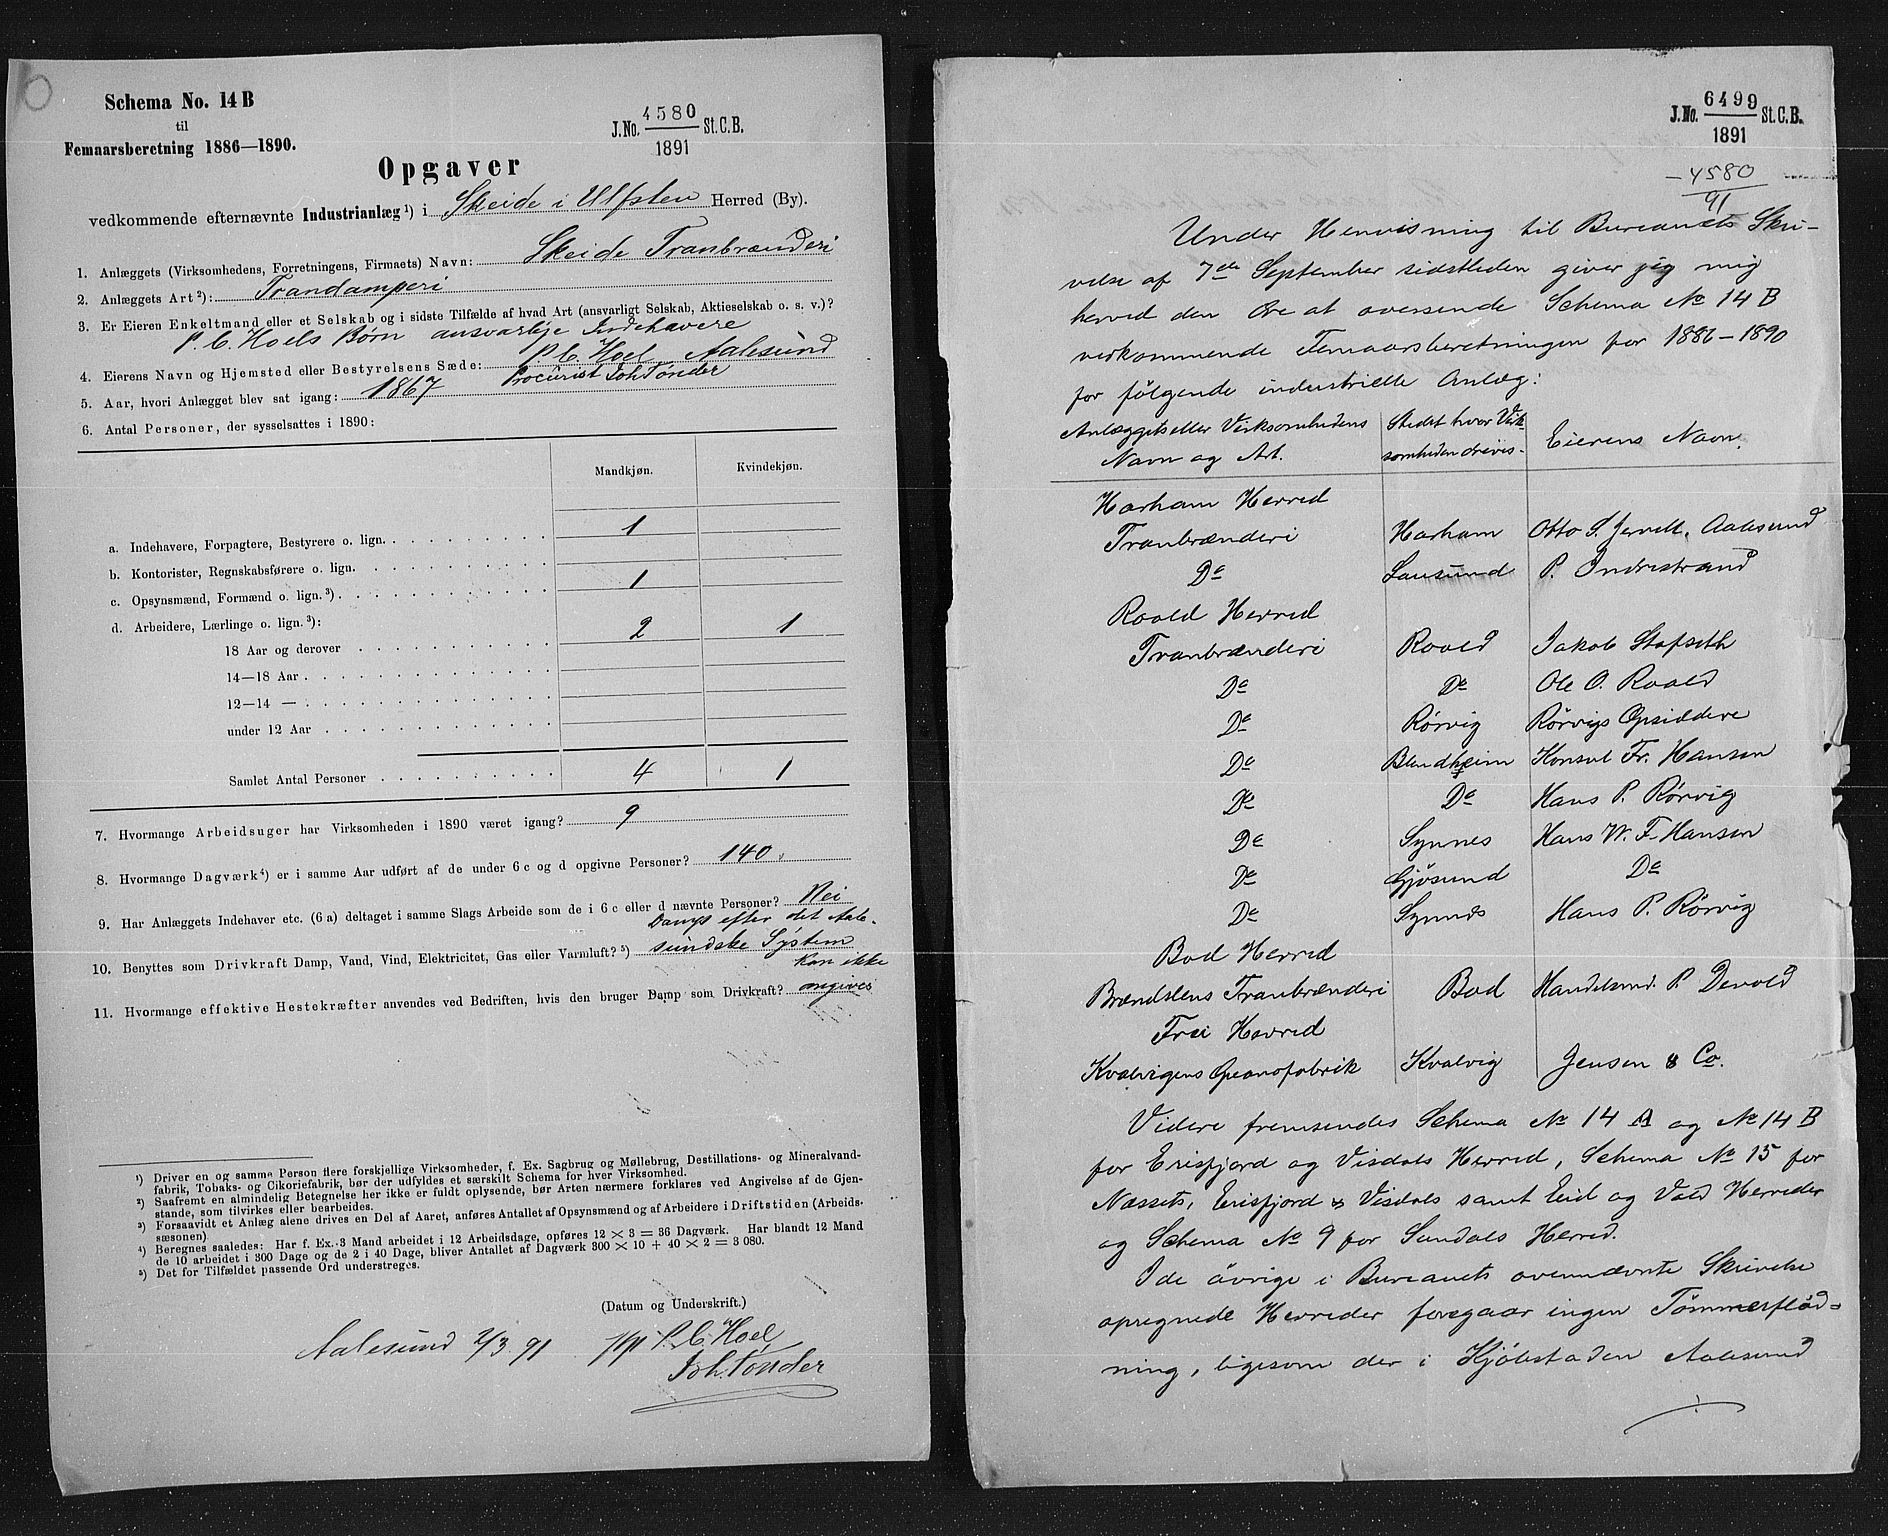 Schema No. 14 B
til
Femaarsberetning 1886—1890.
J.No. 4580 St.C.B.
1891
Opgaver
vedkommende efternævnte Industrianlæg ¹) i Skeide i Ulfsten Herred (By).
1. Anlæggets (Virksomhedens, Forretningens, Firmaets) Navn: Skeide Tranbrænderi
2. Anlæggets Art ²): Trandamperi
3. Er Eieren Enkeltmand eller et Selskab og i sidste Tilfælde af hvad Art (ansvarligt Selskab, Aktieselskab o. s. v.)?
P. C. Hoels Børn ansvarlige Indehavere
4. Eierens Navn og Hjemsted eller Bestyrelsens Sæde: P. C. Hoel Aalesund
Procurist Joh Tønder
5. Aar, hvori Anlægget blev sat igang: 1867
6. Antal Personer, der sysselsattes i 1890:
Mandkjøn. Kvindekjøn.
a. Indehavere, Forpagtere, Bestyrere o. lign. 1
b. Kontorister, Regnskabsførere o. lign.
c. Opsynsmænd, Formænd o. lign. ³) 1
d. Arbeidere, Lærlinge o. lign. ³):
18 Aar og derover 2 1
14—18 Aar
12—14 —
under 12 Aar
Samlet Antal Personer 4 1
7. Hvormange Arbeidsuger har Virksomheden i 1890 været igang? 9
8. Hvormange Dagværk ⁴) er i samme Aar udført af de under 6 c og d opgivne Personer? 140.
9. Har Anlæggets Indehaver etc. (6 a) deltaget i samme Slags Arbeide som de i 6 c eller d nævnte Personer? Nei
Damp efter det Aale-
10. Benyttes som Drivkraft Damp, Vand, Vind, Elektricitet, Gas eller Varmluft? ⁵) sundske System
Kan ikke
11. Hvormange effektive Hestekræfter anvendes ved Bedriften, hvis den bruger Damp som Drivkraft? angives
¹) Driver en og samme Person flere forskjellige Virksomheder, f. Ex. Sagbrug og Møllebrug, Destillations- og Mineralvand-
fabrik, Tobaks- og Cikoriefabrik, bør der udfyldes et særskilt Schema for hver Virksomhed.
²) Saafremt en almindelig Betegnelse her ikke er fuldt oplysende, bør Arten nærmere forklares ved Angivelse af de Gjen-
stande, som tilvirkes eller bearbeides.
³) Forsaavidt et Anlæg alene drives en Del af Aaret, anføres Antallet af Opsynsmænd og af Arbeidere i Driftstiden (Arbeids-
sæsonen)
⁴) Beregnes saaledes: Har f. Ex. 3 Mand arbeidet i 12 Arbeidsdage, opføres 12 × 3 = 36 Dagværk. Har blandt 12 Mand
de 10 arbeidet i 300 Dage og de 2 i 40 Dage, bliver Antallet af Dagværk 300 × 10 + 40 × 2 = 3 080.
⁵) Det for Tilfældet passende Ord understreges.
(Datum og Underskrift.)
Aalesund 2/3 91 ppi P. C. Hoel
Joh. Tønder
J.No. 6499 St.C.B.
1891
4580
91
Under Henvisning til Bureauets Skri-
velse af 7de September sidstleden giver jeg mig
herved den Ære at oversende Schema No 14 B
vedkommende Femaarsberetningen for 1886—1890
for følgende industrielle Anlæg:
Anlæggets eller Virksomhedens Stedet hvor Virk- Eierens Navn.
Navn og Art. somheden drives.
Harham Herred
Tranbrænderi Harham Otto S. Jervell, Aalesund
Do P. Indrestrand
Roald Herred
Tranbrænderi Roald Jakob Stafseth
Do Do Ole O. Roald
Do Rørvig Rørvigs Opsiddere
Do Blindheim Konsul Fr. Hansen
Do Do Hans P. Rørvig
Do Synnes Hans W. F. Hansen
Do Gjøsund Do
Do Synnes Hans P. Rørvig
Bod Herred
Tranbrænderi Bod Handelsmd. P. Devold
Frei Herred
Kvalvigens Guanofabrik Kvalvig Jensen & Co.
Videre fremsendes Schema No 14 A og No 14 B
for Erisfjord og Visdals Herred, Schema No 15 for
Nessets, Erisfjord & Visdals samt Eid og Vold Herreder
og Schema No 9 for Sundals Herred.
I de øvrige i Bureauets ovennævnte Skrivelse
opregnede Herreder foregaar ingen Tømmerflød-
ning, ligesom der i Kjøbstaden Aalesund